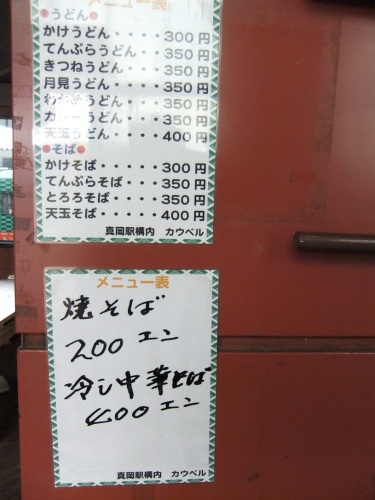 メニュー表
●うどん●
かけうどん・・・・300円
てんぷらうどん・・・350円
きつねうどん・・・・350円
月見うどん・・・・・350円
わかめうどん・・・・350円
カレーうどん・・・・350円
天玉うどん・・・・400円
●そば●
かけそば・・・・・300円
てんぷらそば・・・・350円
とろろそば・・・・・350円
天玉そば・・・・・400円
真岡駅構内 カウベル
メニュー表
焼そば
200エン
冷し中華そば
400エン
真岡駅構内 カウベル